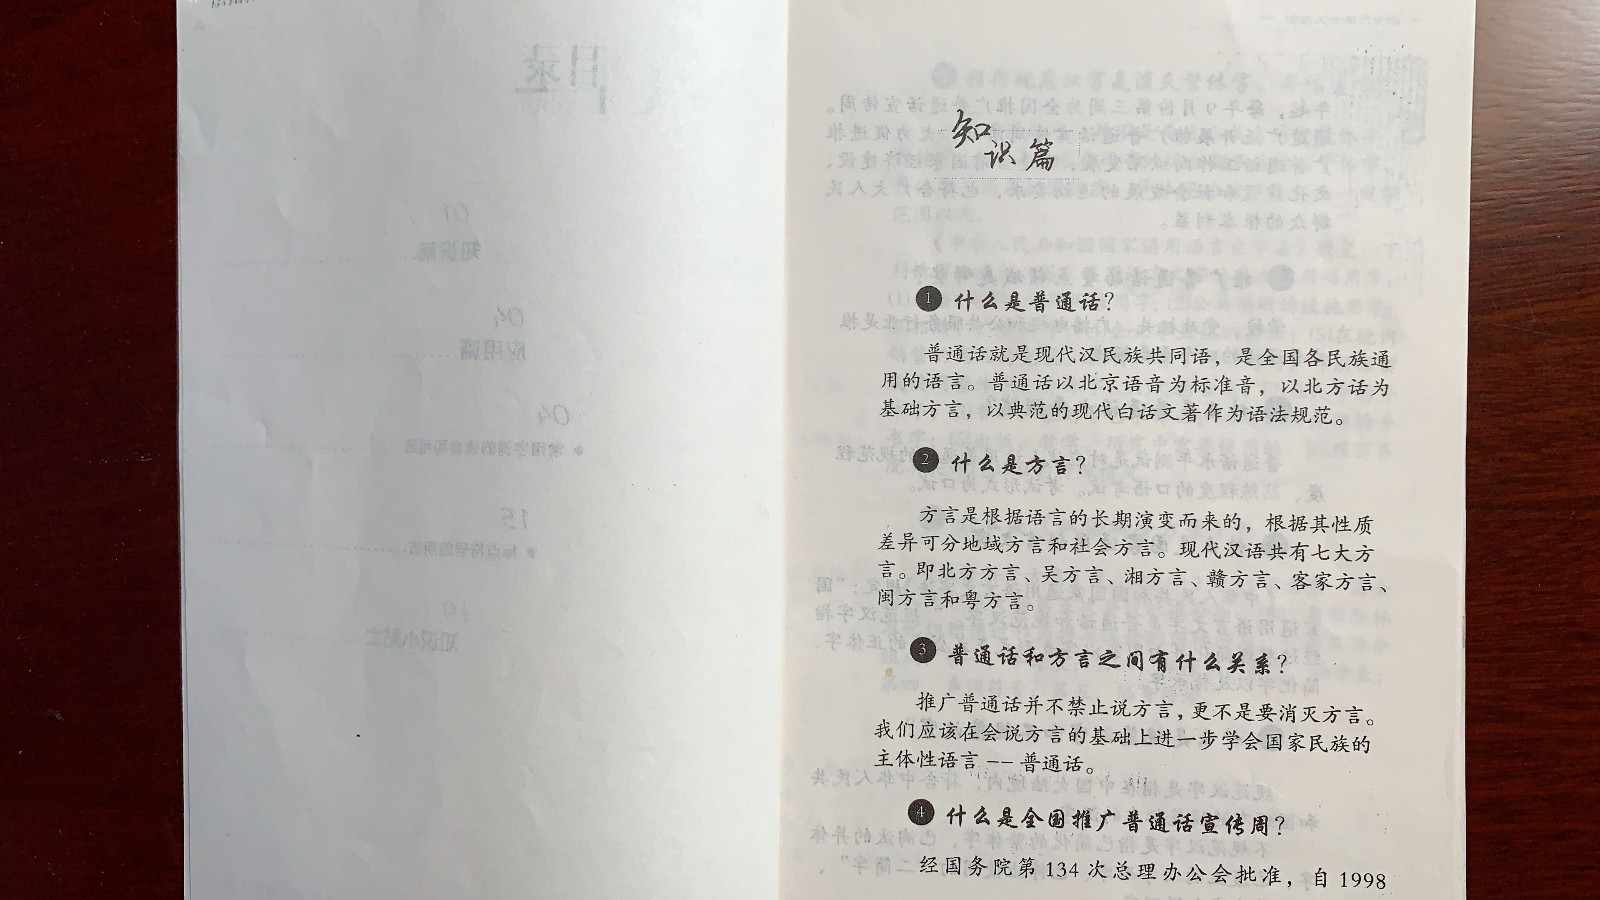 知
识篇
1 什么是普通话？
普通话就是现代汉民族共同语，是全国各民族通
用的语言。普通话以北京语音为标准音，以北方话为
基础方言，以典范的现代白话文著作为语法规范。
2 什么是方言？
方言是根据语言的长期演变而来的，根据其性质
差异可分地域方言和社会方言。现代汉语共有七大方
言。即北方方言、吴方言、湘方言、赣方言、客家方言、
闽方言和粤方言。
3 普通话和方言之间有什么关系？
推广普通话并不禁止说方言，更不是要消灭方言。
我们应该在会说方言的基础上进一步学会国家民族的
主体性语言——普通话。
4 什么是全国推广普通话宣传周？
经国务院第134次总理办公会批准，自1998